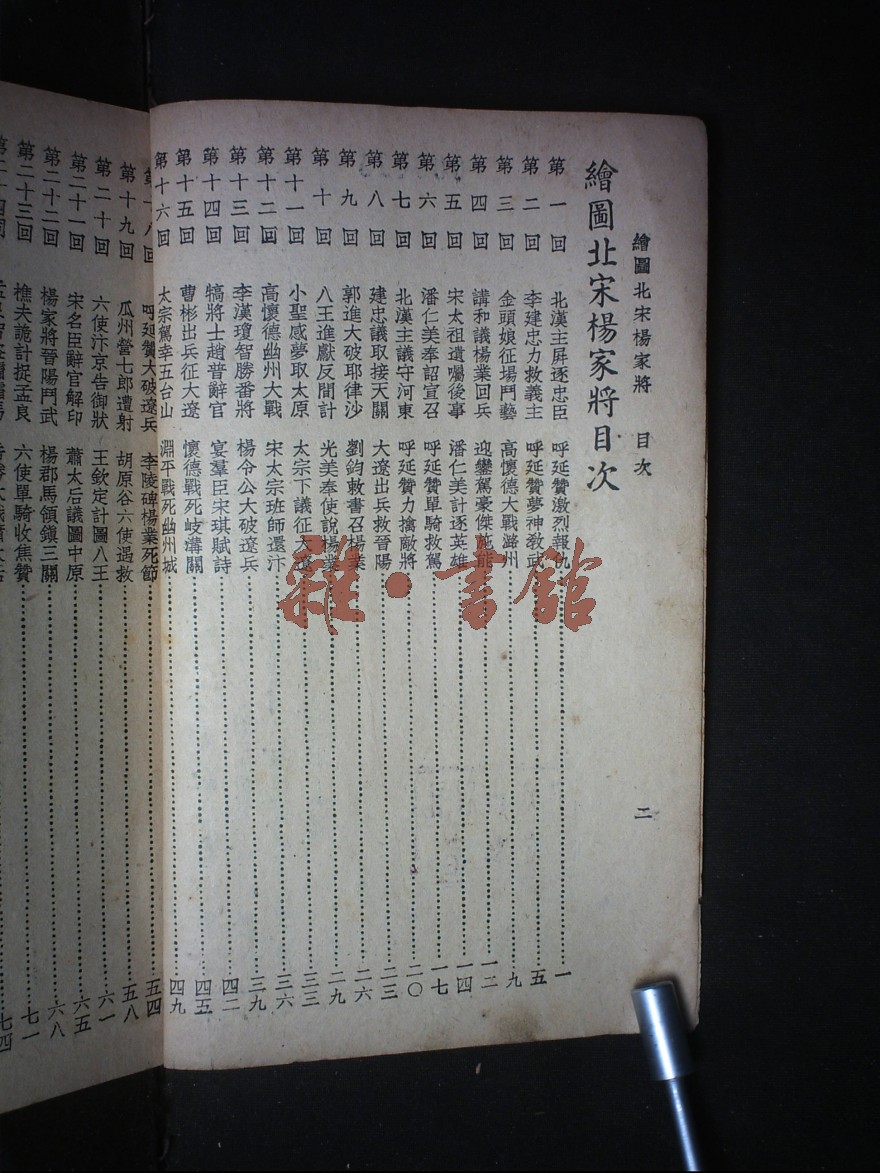 繪圖北宋楊家將 目次 二
繪圖北宋楊家將目次
第一回 北漢主屏逐忠臣 呼延贊激烈報仇 一
第二回 李建忠力救義主 呼延贊夢神教武 五
第三回 金頭娘征場鬥藝 高懷德大戰潞州 九
第四回 講和議楊業回兵 迎鑾駕豪傑施能 一二
第五回 宋太祖遺囑後事 潘仁美計逐英雄 一四
第六回 潘仁美奉詔宣召 呼延贊單騎救駕 一七
第七回 北漢主議守河東 呼延贊力擒敵將 二〇
第八回 建忠議取接天關 大遼出兵救晉陽 二三
第九回 郭進大破耶律沙 劉鈞敕書召楊業 二六
第十回 八王進獻反間計 光美奉使說楊業 二九
第十一回 小聖感夢取太原 太宗下議征大遼 三三
第十二回 高懷德幽州大戰 宋太宗班師還汴 三六
第十三回 李漢瓊智勝番將 楊令公大破遼兵 三九
第十四回 犒將士趙普辭官 宴羣臣宋琪賦詩 四二
第十五回 曹彬出兵征大遼 懷德戰死岐溝關 四五
第十六回 太宗駕幸五台山 淵平戰死幽州城 四九
第十八回 呼延贊大破遼兵 李陵碑楊業死節 五四
第十九回 瓜州營七郎遭射 胡原谷六使遇救 五八
第二十回 六使汴京告御狀 王欽定計圖八王 六一
第二十一回 宋名臣辭官解印 蕭太后議圖中原 六五
第二十二回 楊家將晉陽鬥武 楊郡馬領鎮三關 六八
第二十三回 樵夫詭計捉孟良 六使單騎收焦贊 七一
第二十四回 七四
雜·書館